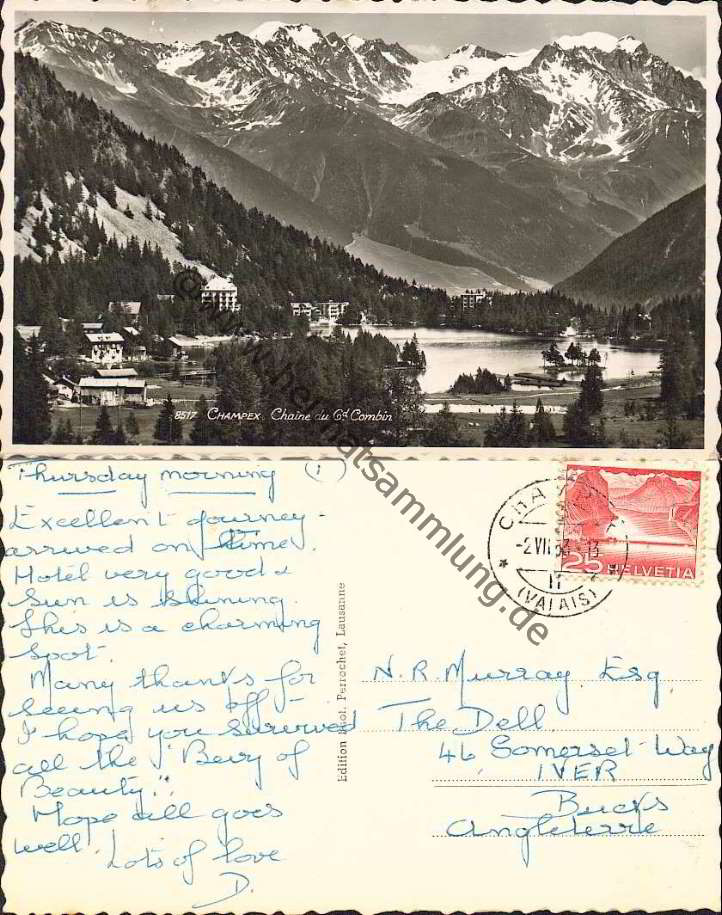 8517 CHAMPEX. Chaîne du Gd Combin
© www.heimatsammlung.de
Thursday morning (1)
Excellent journey -
arrived on time.
Hotel very good &
sun is shining.
This is a charming
spot.
Many thanks for
seeing us off -
I hope you survived
all the "Bevy of
Beauty"!
Hope all goes
well. Lots of love
D.
Edition Phot. Perrochet, Lausanne
-2.VII.53-13
(VALAIS)
25 HELVETIA
N. R. Murray. Esq.
The Dell.
46 Somerset Way
IVER
Bucks
Angleterre